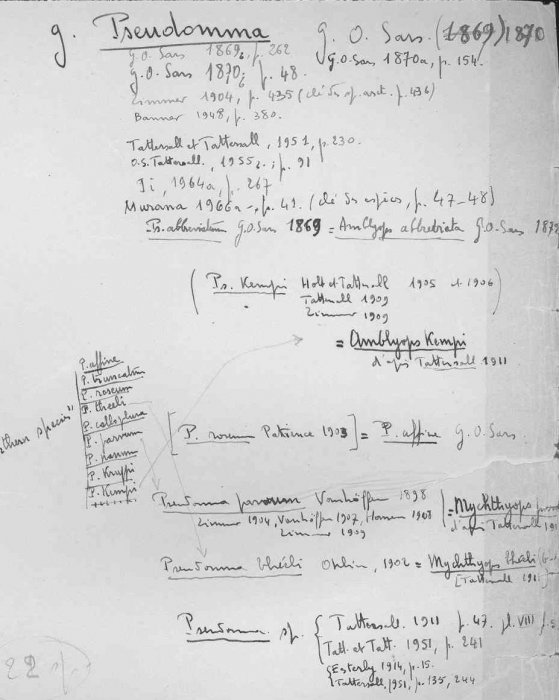 g. Pseudomma G. O. Sars. (1869) 1870
G.O. Sars 1869, p. 262 G.O. Sars 1870a, p. 154.
G.O. Sars 1870, p. 48.
Zimmer 1904, p. 435 (clé p. 436)
Banner 1948, p. 380.
Tattersall et Tattersall, 1951, p. 230.
O.S. Tattersall, 1955, p. 91
Ii, 1964a, p. 267
Murano 1966a, p. 41. (clé p. 47-48)
Ps. abbreviatum G.O. Sars 1869 = Amblyops abbreviata G.O. Sars
(Ps. Kempi Holt et Tattersall 1905 et 1906)
Tattersall 1909
Zimmer 1909
= Amblyops Kempi
d'après Tattersall 1911
P. affine
P. truncatum
P. roseum
P. theeli
P. calloplura
P. parvum
P. Kruppi
P. Kempi
species"
[P. roseum Patience 1903] = P. affine G.O. Sars.
Pseudomma parvum Vanhöffen 1898 = Mychthyops
Zimmer 1904, Vanhöffen 1907, Hansen 1908 d'après Tattersall
Zimmer 1909
Pseudomma théeli Ohlin, 1902 = Mychthyops théeli
[Tattersall
Pseudomma sp. { Tattersall 1911 p. 47. pl. VIII
Tatt. et Tatt. 1951, p. 241
Esterly 1914, p. 15.
Tattersall, 1951, p. 135, 244
22 sp.